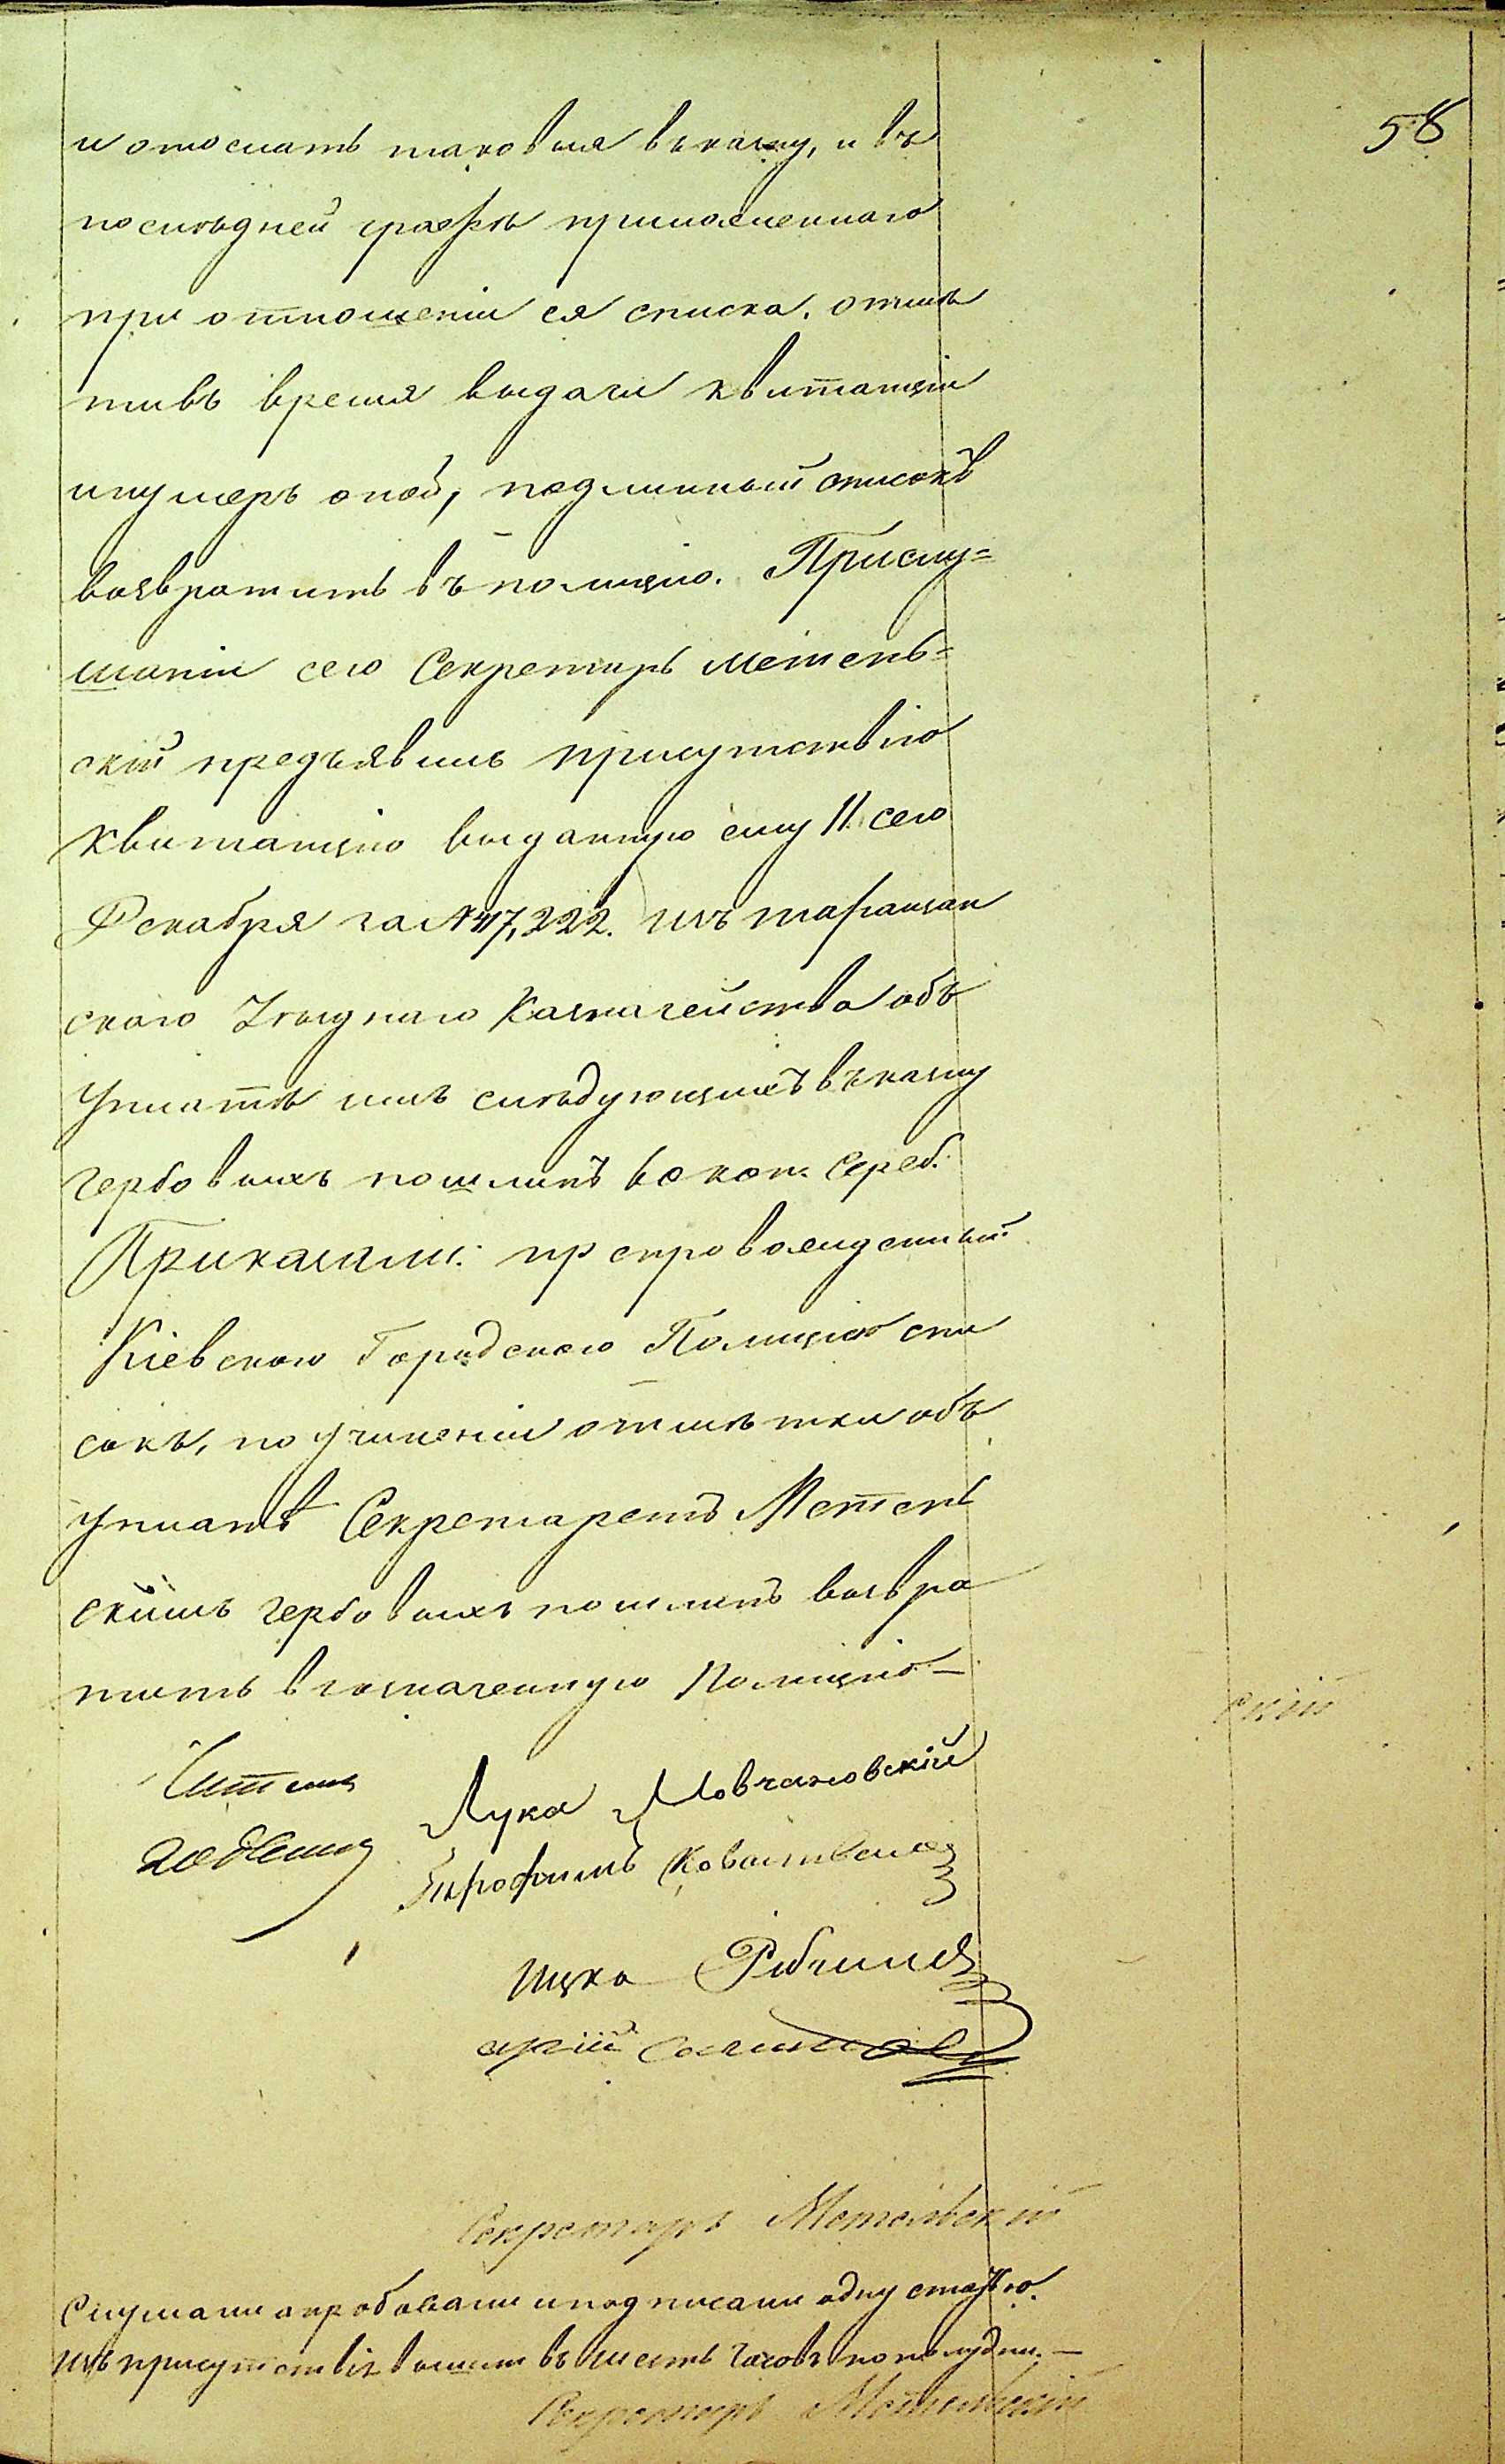 58
и отослать таковыя въ казну, и въ
последней графѣ приложеннаго
при отношеніи ея списка. отмѣ
тивъ время выдачи квитанціи
и нумеръ оной, подлинный списокъ
возвратить въ полицію. При слу=
шаніи сего Секретарь Метель=
скій предъявилъ присутствію
квитанцію выданную ему 11 сего
Декабря за № 17,222. изъ Таращан
скаго Уѣзднаго Казначейства объ
уплатѣ имъ слѣдующихъ въ казну
гербовыхъ пошлинъ коп. сереб.
Приказали: препровожденный
Кіевскою Городскою Полиціею спи
сокъ, по учиненіи отмѣтки объ
уплатѣ Секретаремъ Метель
скимъ гербовыхъ пошлинъ возвра
тить въ означенную Полицію —
Лука Мовчановскій
Ицко
Секретарь Метельскій
Слушали апробовали и подписали одну статью.
Изъ присутствія вышли въ шесть часовъ по полудни. —
Секретарь Метельскій
скій